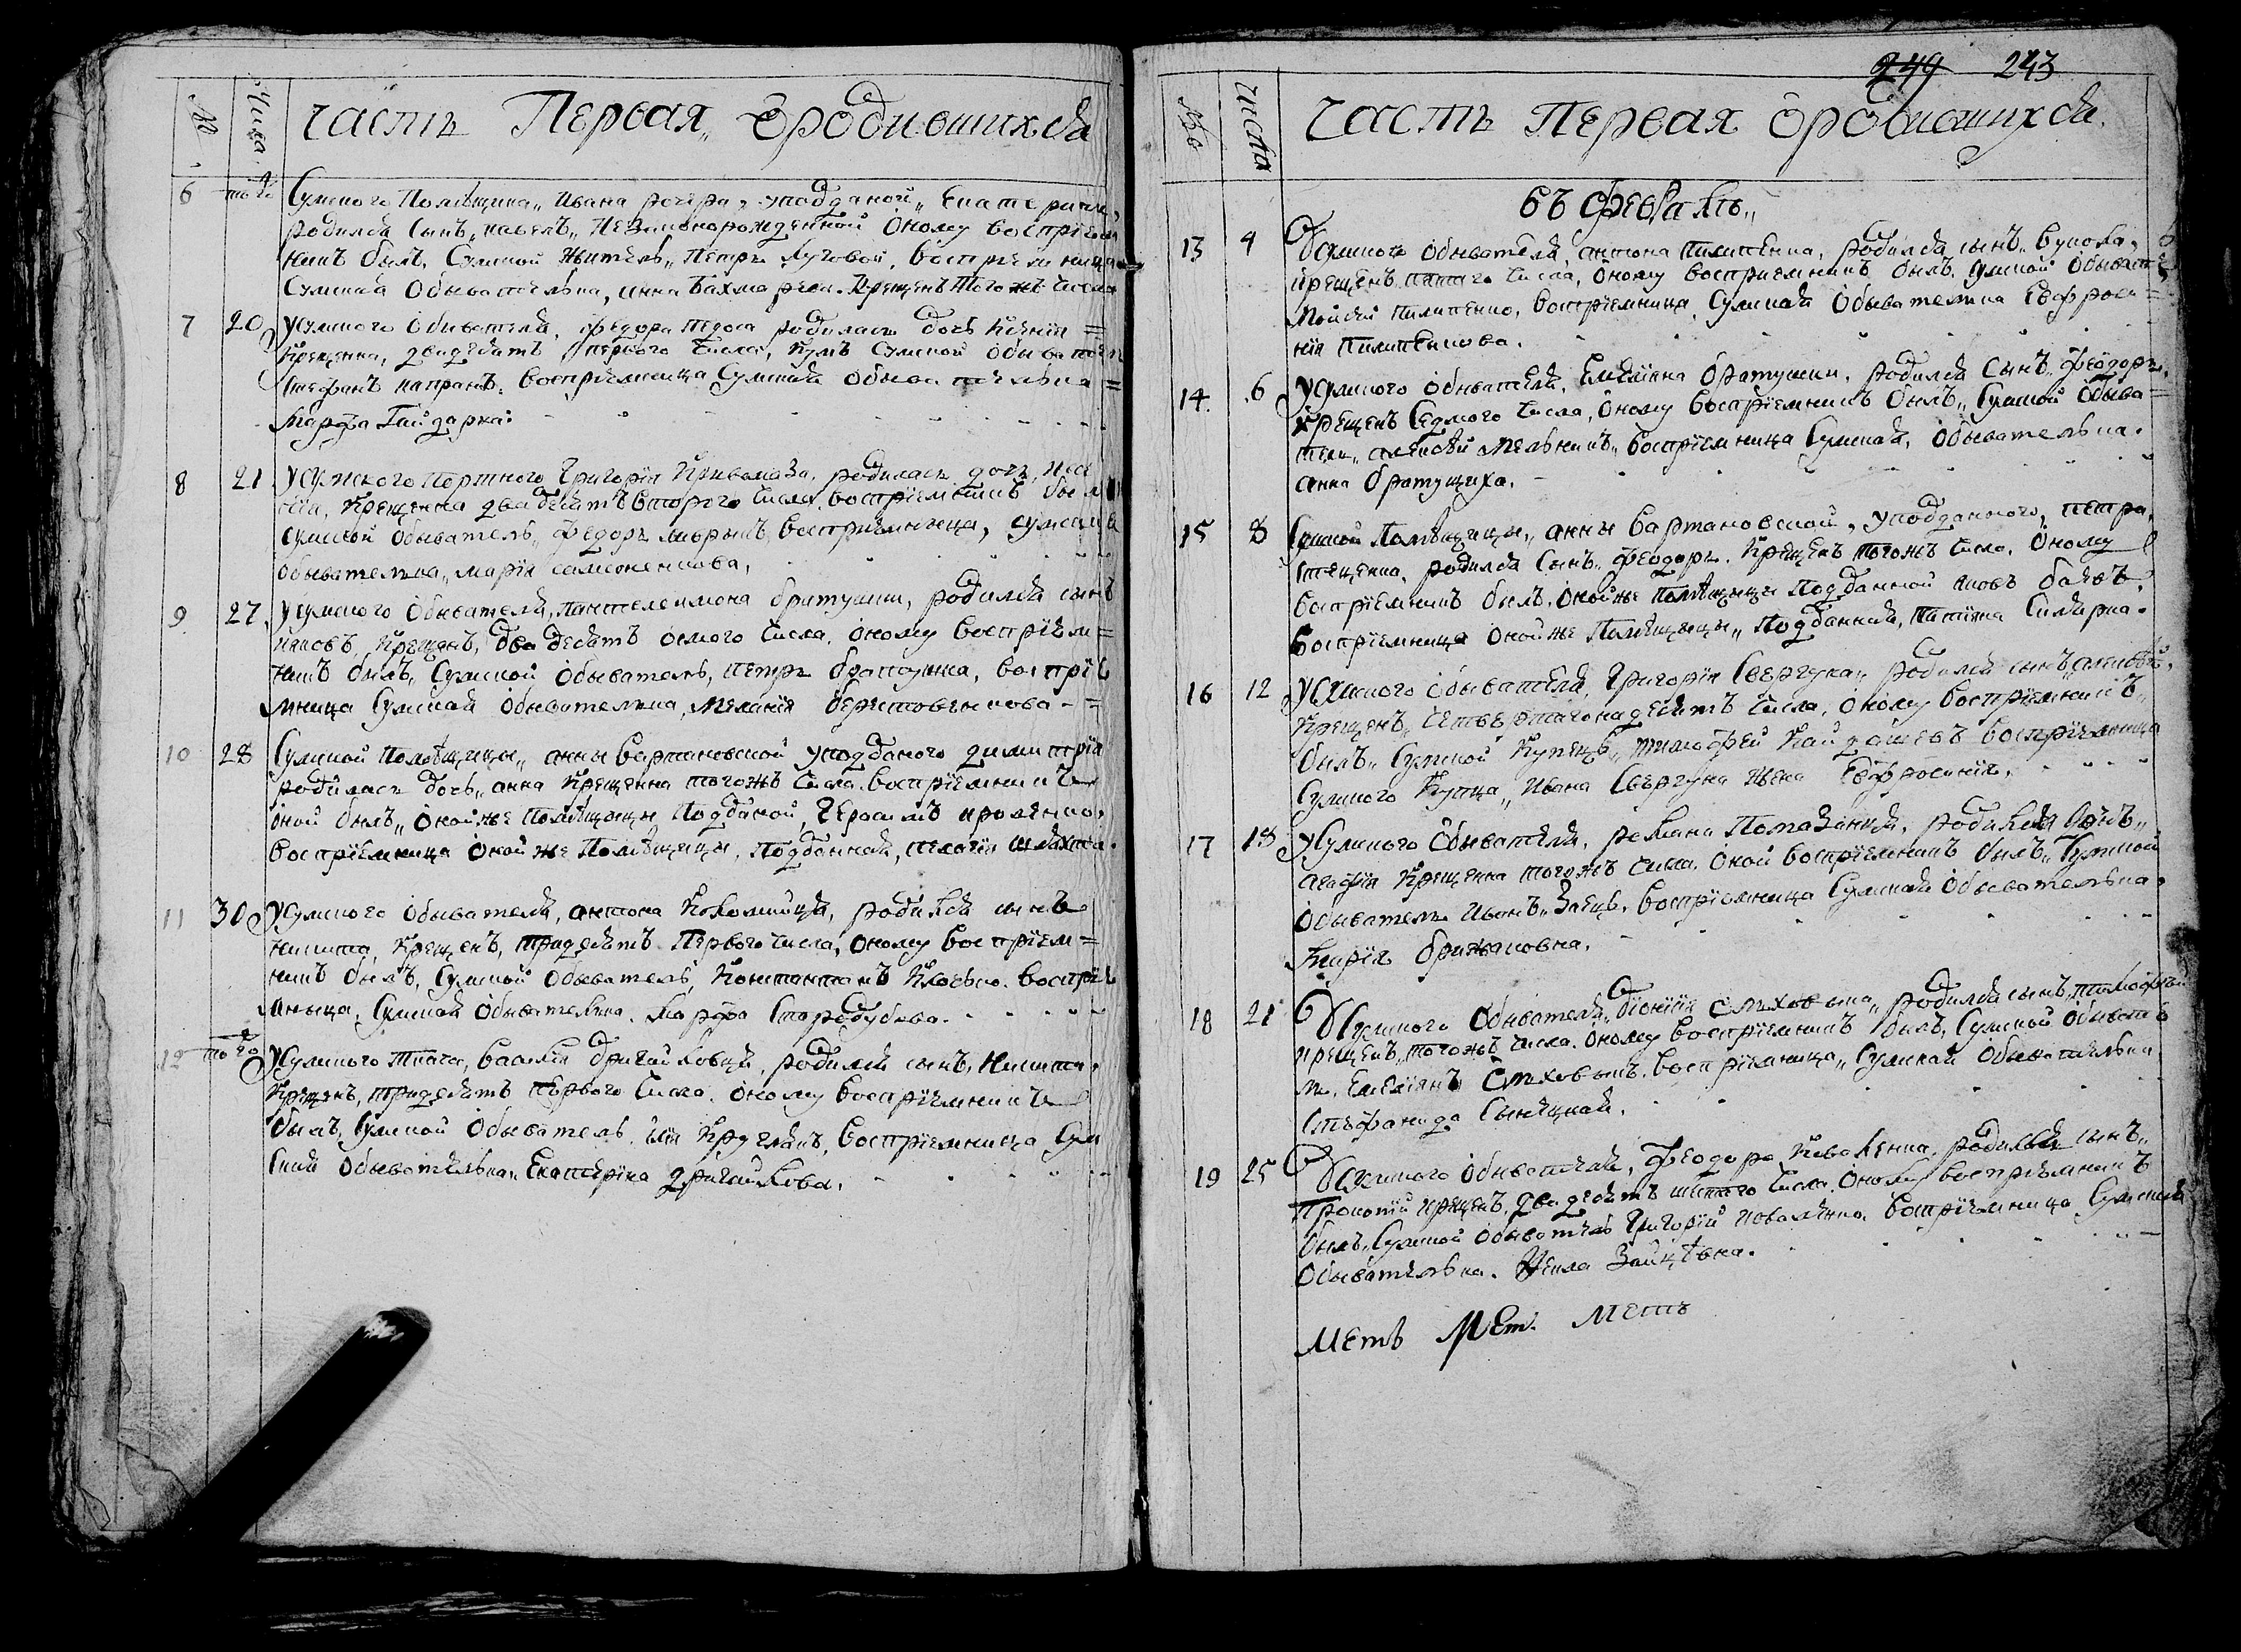 №
Числа
часть Первая „ ѡродившихся
6 тогѡ Сумского Помѣщика „ Ивана рогѣра, уподданой „ Екатерини,
родился Сынъ „ павелъ „ Незаконорожденной Оному воспрїем
никъ былъ, Сумской житель „ Петръ Луговой, воспрїемница
Сумская Обывателька, анна Бахма Крещенъ Того жъ числа
7 20 Усумского Обивателя, федора родилась дочь Ксенїя =
Крещенна, двадесять первого числа, Кумъ Сумской обивате
Стефанъ воспрїемница Сумская обывателька =
Марфа Гайдарка:
8 21 Усумского Портного Григорїя Кривомаза, родилась дочь,
Крещенна двадесять второго числа, воспрїемникъ былъ
сумской обыватель „ федоръ воспрїемница, сумская
обывателька „ марїя самоненкова,
9 27 Усумского Обывателя, Пантелеимона братушки, родился сынъ
иаковъ, Крещенъ, двадесять осмого числа, оному воспрїем=
никъ былъ „ Сумской Обыватель, петръ братушка, воспрїе
мница Сумская Обывателька, Меланїя берестовенкова - =
10 28 Сумской Помѣщицы „ анны вартановской уподданого димитрїя
родилась дочь „ анна Крещенна того жъ числа воспрїемникъ
оной былъ „ оной же Помѣщицы Подданой, Герасимъ
воспрїемница оной же Помѣщицы, Подданная, пелагїя
11 30 Усумского обывателя, антона Коломийця, родился сынъ
никита, Крещенъ, тридесять Первого числа, оному воспрїем=
никъ былъ, Сумской обыватель, Константинъ Клочко. воспрїе
мница, Сумская обывателька. Марфа Стародубова.
12 тогѡ Усумского Ткача, василїя дригайловця, родился сынъ, Никита,
Крещенъ, тридесять первого числа. оному воспрїемникъ
былъ, Сумской Обыватель. Илїя воспрїемница Сум
ская обывателька „ Екатерїна дригайлова.
249 243
№
числа
часть Первая ѡродившихся.
въ февралѣ „
13 4 Усумского обывателя, антона пилипенка, родился сынъ „ вукола,
крещенъ пятаго числа, оному воспрїемникъ былъ. Сумской обывате
Мойсей пилипенко, воспрїемница, Сумская Обывателька Евфроси=
нїя пилипенкова.
14 6 Усумского обывателя, Емелїяна братушки, родился Сынъ „ феодоръ,
Крещенъ седмого числа, оному воспрїемникъ былъ „ Сумской обыва=
тель „ алексѣй мельникъ „ воспрїемница Сумская, обывателька.
анна братущиха.
15 8 Сумской Помѣщицы „ анны вартановской, уподданного, петра,
стеценка, родился Сынъ „ феодоръ. Крещенъ того жъ числа. оному
воспрїемникъ былъ. оной же помѣщицы Подданной иаковъ
воспрїемница оной же Помѣщицы „ Подданная, татїяна
16 12 Усумского обывателя, Григорїя Свергуна „ родился сынъ, алексѣй,
Крещенъ, четвертагонадесять числа, оному воспрїемникъ
былъ „ Сумской Купецъ „ тимофей воспрїемница
Сумского Купца „ Ивана Свергуна жена Евфросинїя.
17 18 Усумского обывателя, романа Помазанця, родилась дочь
агафїя Крещенна того жъ числа. оной воспрїемникъ былъ „ Сумской
обыватель Иванъ „ Заецъ, воспрїемница Сумская обывателька.
Марїя
18 21 Усумского Обывателя „ Дїонїсїя родился сынъ тимофей
крещенъ „ того жъ числа. оному воспрїемникъ былъ, Сумской обывате
ль, Емелїянъ воспрїемница „ Сумская обывателька
Стефанида Синецкая.
19 25 Усумского обывателя, феодора Коваленка, родился сынъ „
Прокопїй крещенъ двадесять шестого числа. оному воспрїемникъ
былъ. Сумской обыватель Григорїй коваленко. воспрїемница Сумская
обывателька. Зайцѣвна.
Метъ Мет. Метъ